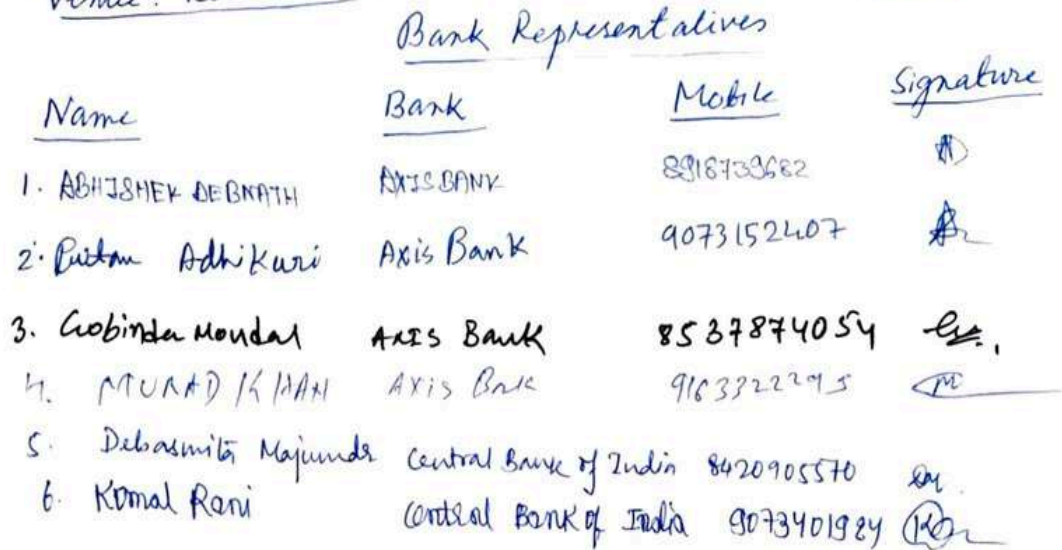 Venue:
Bank Representatives
Name Bank Mobile Signature
1. ABHISHEK DEBNATH AXIS BANK 8918739682
2. Adhikari Axis Bank 9073152407
3. Gobinda Mondal AXIS Bank 8537874054
4. MURAD KHAN Axis Bank 9163322295
5. Debasmita Majumdr Central Bank of India 8420905570
6. Komal Rani Central Bank of India 9073401984